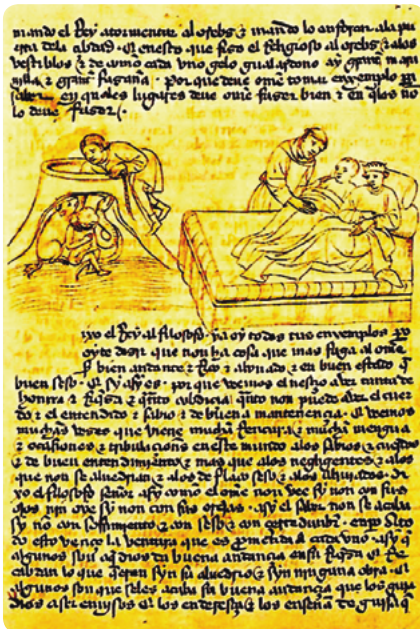 mando el Rey atormentar al orebs τ mando lo anforcar ala pu
erta dela abdad. Et en esto que fizo el Religioso al orebs τ alos
vestiblos τ de como cada vno gelo gualardono ay grant mara
uilla τ grant fazaña. Por que deue ome tomar enxemplo
saber en quales lugares deue ome faser bien τ en qles no
lo deue faser
ixo el Rey al filosofo. ya oy todos tus enxemplos
oyte desir que non ha cosa que mas faga al ome
bien andante τ Rico τ en buen estado q
buen seso. Et sy asy es. por que veemos el nesçio aber tanta de
honrra τ Riqsa non puede aber el cuer
do τ el entendido τ sabio τ de buena mantenençia. Et veemos
muchas veses que viene mucha τ mucha mengua
τ ocasiones τ tribulaciones en este mundo alos sabios τ cuerdos
τ de buen entendimiento τ mas que alos negligentes τ alos
que non se aluedrian τ alos de flaco seso τ alos. di
xo el filosofo señor asy como el ome non vee sy non con sus
ojos nin oye sy non con sus orejas. asy el saber non se acaba
sy no con sofrimiento τ con seso τ con. enpo
do esto vençe la ventura que es prometida a cada vno. asy q
algunos son aq dios da buena andança en su fasienda et Re
cabdan lo que qeren syn su aluedrio τ syn ninguna obra. et
algunos son que seles acaba su buena andança que los guia
dios τ los endereça τ los enseña de guisa q